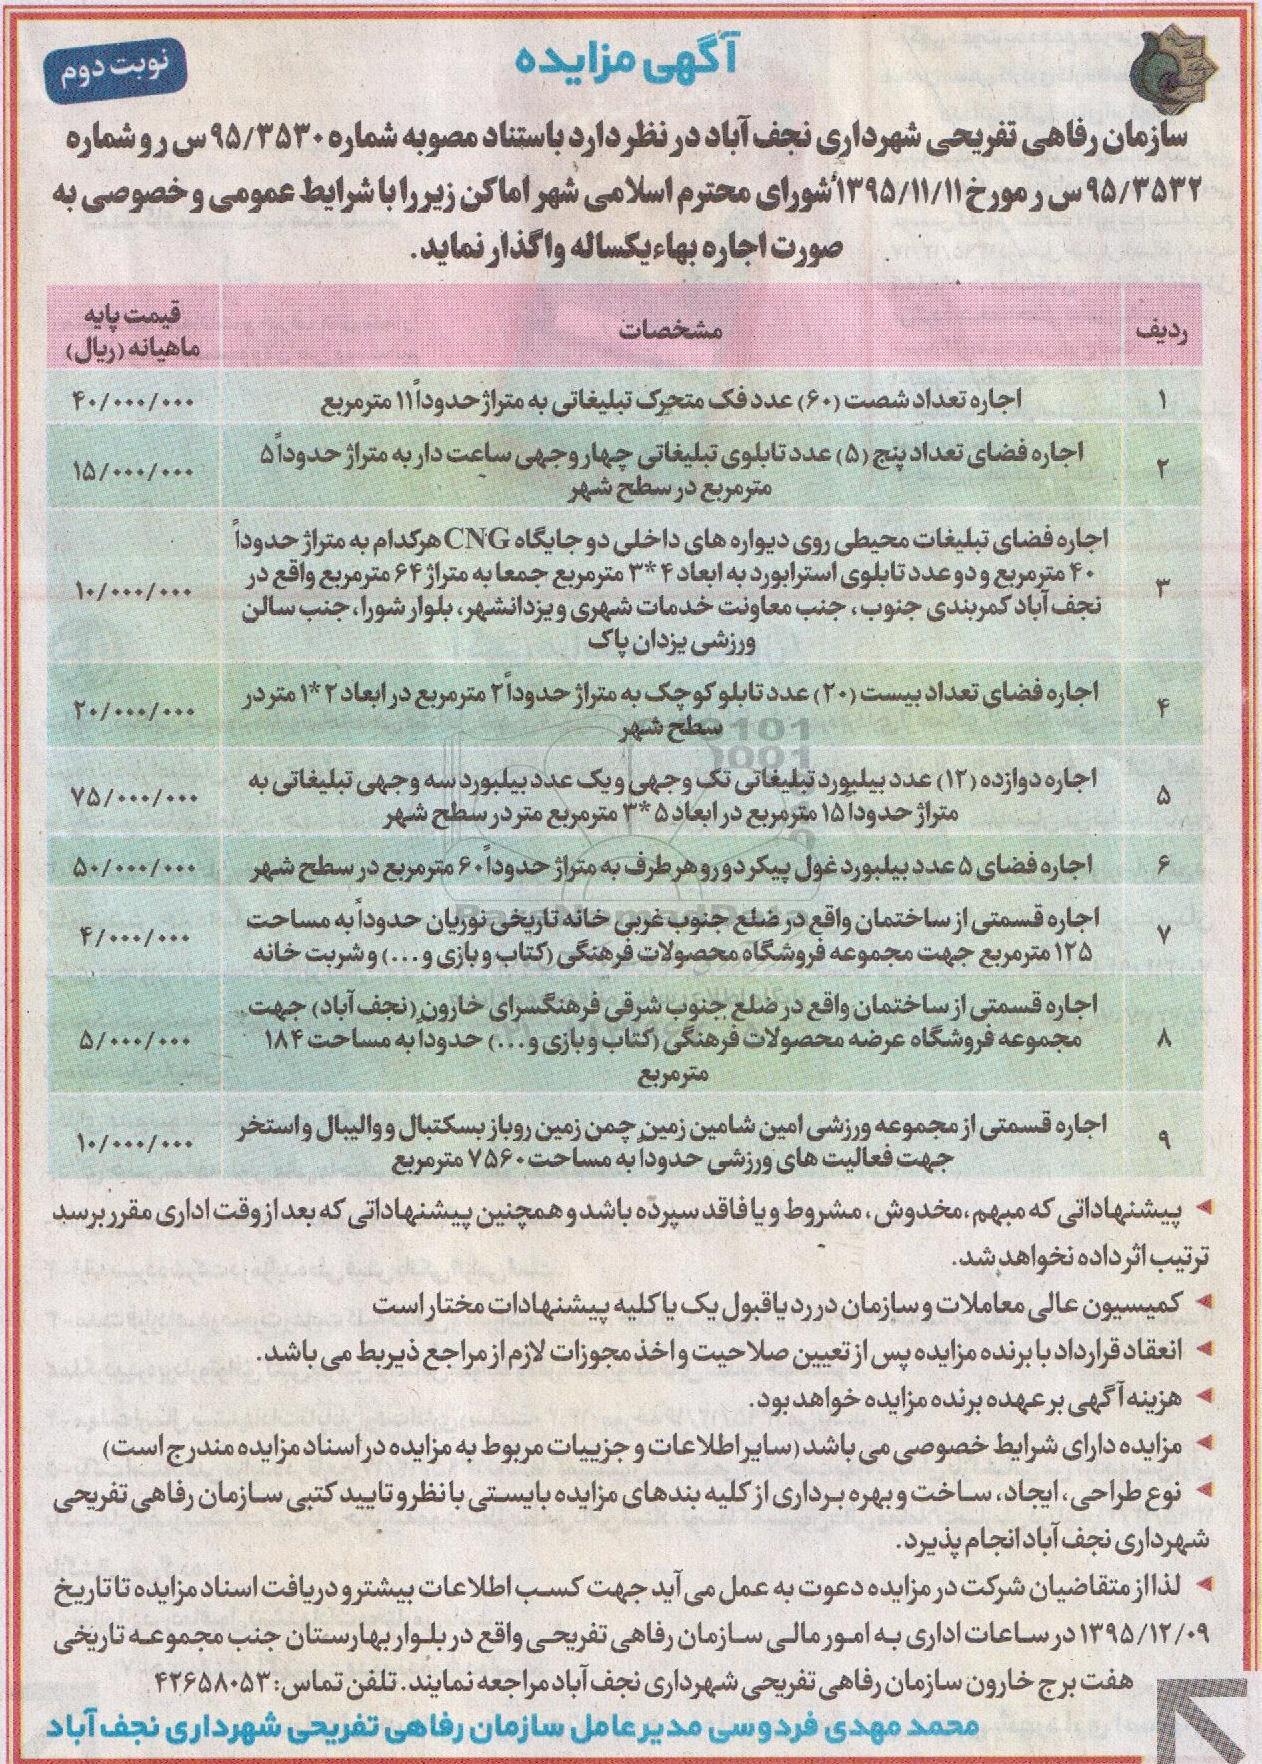 آگهی مزایده
نوبت دوم
سازمان رفاهی تفریحی شهرداری نجف آباد در نظر دارد باستناد مصوبه شماره ۹۵/۳۵۳۰س ر و شماره
۹۵/۳۵۳۲س ر مورخ ۱۳۹۵/۱۱/۱۱ شورای محترم اسلامی شهر اماکن زیر را با شرایط عمومی و خصوصی به
صورت اجاره بهاء یکساله واگذار نماید.
ردیف مشخصات قیمت پایه
ماهیانه (ریال)
۱ اجاره تعداد شصت (۶۰) عدد فک متحرک تبلیغاتی به متراژ حدوداً ۱۱ مترمربع ۴۰/۰۰۰/۰۰۰
۲ اجاره فضای تعداد پنج (۵) عدد تابلوی تبلیغاتی چهار وجهی ساعت دار به متراژ حدوداً ۵
مترمربع در سطح شهر ۱۵/۰۰۰/۰۰۰
۳ اجاره فضای تبلیغات محیطی روی دیواره های داخلی دو جایگاه CNG هرکدام به متراژ حدوداً
۴۰ مترمربع و دو عدد تابلوی استرابورد به ابعاد ۴*۳ مترمربع جمعا به متراژ ۶۴ مترمربع واقع در
نجف آباد کمربندی جنوب، جنب معاونت خدمات شهری و یزدانشهر، بلوار شورا، جنب سالن
ورزشی یزدان پاک ۱۰/۰۰۰/۰۰۰
۴ اجاره فضای تعداد بیست (۲۰) عدد تابلو کوچک به متراژ حدوداً ۲ مترمربع در ابعاد ۲*۱ متر در
سطح شهر ۲۰/۰۰۰/۰۰۰
۵ اجاره دوازده (۱۲) عدد بیلبورد تبلیغاتی تک وجهی و یک عدد بیلبورد سه وجهی تبلیغاتی به
متراژ حدوداً ۱۵ مترمربع در ابعاد ۵*۳ مترمربع متر در سطح شهر ۷۵/۰۰۰/۰۰۰
۶ اجاره فضای ۵ عدد بیلبورد غول پیکر دو رو هر طرف به متراژ حدوداً ۶۰ مترمربع در سطح شهر ۵۰/۰۰۰/۰۰۰
۷ اجاره قسمتی از ساختمان واقع در ضلع جنوب غربی خانه تاریخی نوریان حدوداً به مساحت
۱۲۵ مترمربع جهت مجموعه فروشگاه محصولات فرهنگی (کتاب و بازی و...) و شربت خانه ۴/۰۰۰/۰۰۰
۸ اجاره قسمتی از ساختمان واقع در ضلع جنوب شرقی فرهنگسرای خارون (نجف آباد) جهت
مجموعه فروشگاه عرضه محصولات فرهنگی (کتاب و بازی و...) حدوداً به مساحت ۱۸۴
مترمربع ۵/۰۰۰/۰۰۰
۹ اجاره قسمتی از مجموعه ورزشی امین شامین زمین چمن زمین روباز بسکتبال و والیبال و استخر
جهت فعالیت های ورزشی حدوداً به مساحت ۷۵۶۰ مترمربع ۱۰/۰۰۰/۰۰۰
پیشنهاداتی که مبهم، مخدوش، مشروط و یا فاقد سپرده باشد و همچنین پیشنهاداتی که بعد از وقت اداری مقرر برسد
ترتیب اثر داده نخواهد شد.
کمیسیون عالی معاملات و سازمان در رد یا قبول یک یا کلیه پیشنهادات مختار است
انعقاد قرارداد با برنده مزایده پس از تعیین صلاحیت و اخذ مجوزات لازم از مراجع ذیربط می باشد.
هزینه آگهی بر عهده برنده مزایده خواهد بود.
مزایده دارای شرایط خصوصی می باشد (سایر اطلاعات و جزییات مربوط به مزایده در اسناد مزایده مندرج است)
نوع طراحی، ایجاد، ساخت و بهره برداری از کلیه بندهای مزایده بایستی با نظر و تایید کتبی سازمان رفاهی تفریحی
شهرداری نجف آباد انجام پذیرد.
لذا از متقاضیان شرکت در مزایده دعوت به عمل می آید جهت کسب اطلاعات بیشتر و دریافت اسناد مزایده تا تاریخ
۱۳۹۵/۱۲/۰۹ در ساعات اداری به امور مالی سازمان رفاهی تفریحی واقع در بلوار بهارستان جنب مجموعه تاریخی
هفت برج خارون سازمان رفاهی تفریحی شهرداری نجف آباد مراجعه نمایند. تلفن تماس: ۴۲۶۵۸۰۵۳
محمد مهدی فردوسی مدیرعامل سازمان رفاهی تفریحی شهرداری نجف آباد